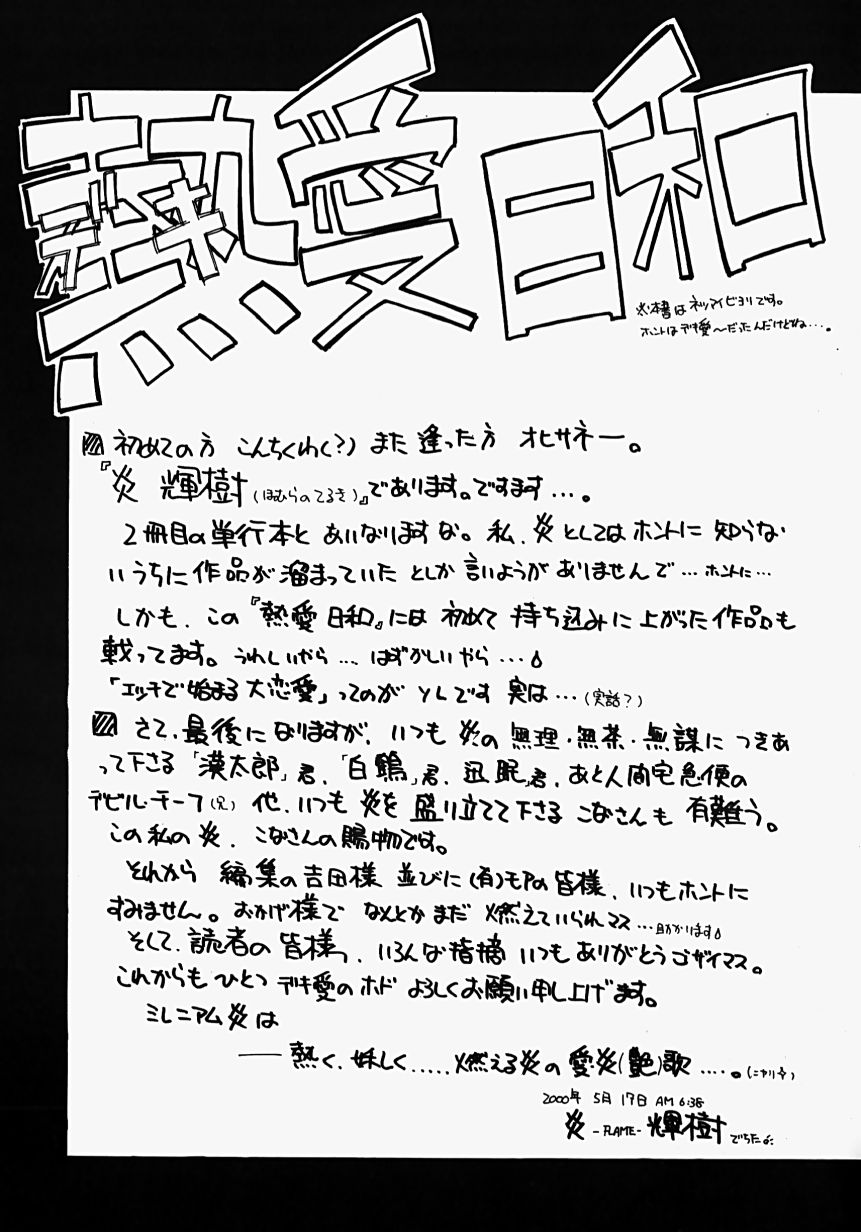 熱愛日和
デキ
※本書はネツアイビヨリです。
ホントはデキ愛〜だったんだけどね…。
初めての方 こんちくわ(?) また逢った方 オヒサネー。
『炎 輝樹(ほむらのてるき)』であります。ですます…。
2冊目の単行本と あいなりますな。私、炎としてはホントに知らな
いうちに作品が溜まっていたとしか言いようがありませんで…ホントに…
しかも、この『熱愛日和』には初めて持ち込みに上がった作品も
載ってます。うれしいやら…はずかしいやら…
「エッチで始まる大恋愛」ってのがソレです実は…(実話?)
さて、最後になりますが、いつも炎の無理・無茶・無謀につきあ
って下さる「漢太郎」君、「白鷺」君、迅眠」君、あと人間宅急便の
デビル・チーフ(兄)他、いつも炎を盛り立てて下さるみなさんも有難う。
この私の炎、みなさんの賜物です。
それから 編集の吉田様 並びに(有)モアの皆様、いつもホントに
すみません。おかげ様で なんとかまだ 燃えていられマス…助かります
そして、読者の皆様っ、いろんな指摘 いつもありがとうゴザイマス。
これからもひとつ デキ愛のホド よろしくお願い申し上げます。
ミレニアム炎は
──熱く、妖しく.....燃える炎の愛炎(艶)歌.....。(ニヤリ)
2000年 5月 17日 AM 6:38
炎 -FLAME- 輝樹 でちたよ.